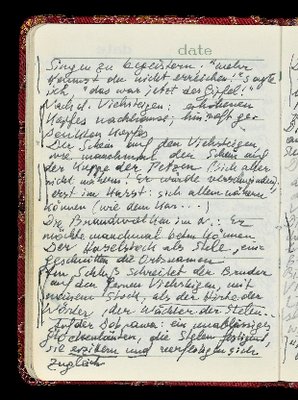 date
Singen zu begeistern: "mehr
kannst du nicht erreichen!" sagte
ich, "das war jetzt der Gipfel!"
Nach d. Viehsteigen: erhobenen
Kopfes nachhause; hinauf ge-
senkten Kopfes
Der Schein auf den Viehsteigen,
wie manchmal der Schein auf
der Kuppe der Petzen (Sich aber
nicht nähern: Er würde verschwinden,
erst im Herbst: sich allem nähern
können (wie dem Kar...)
Die Brandwolken im N.: Er
möchte manchmal beten können
Der Haselstock als Stele, ein-
geschnitten die Ortsnamen
Am Schluß schreitet der Bruder
auf den leeren Viehsteigen, mit
seinem Stock, als der Hirte der
Wörter, der Wächter der Stelen
Auf der Dobrawa: ein unablässiges
Glockenläuten, die Stelen
sie erzittern und verfestigen sich
zugleich